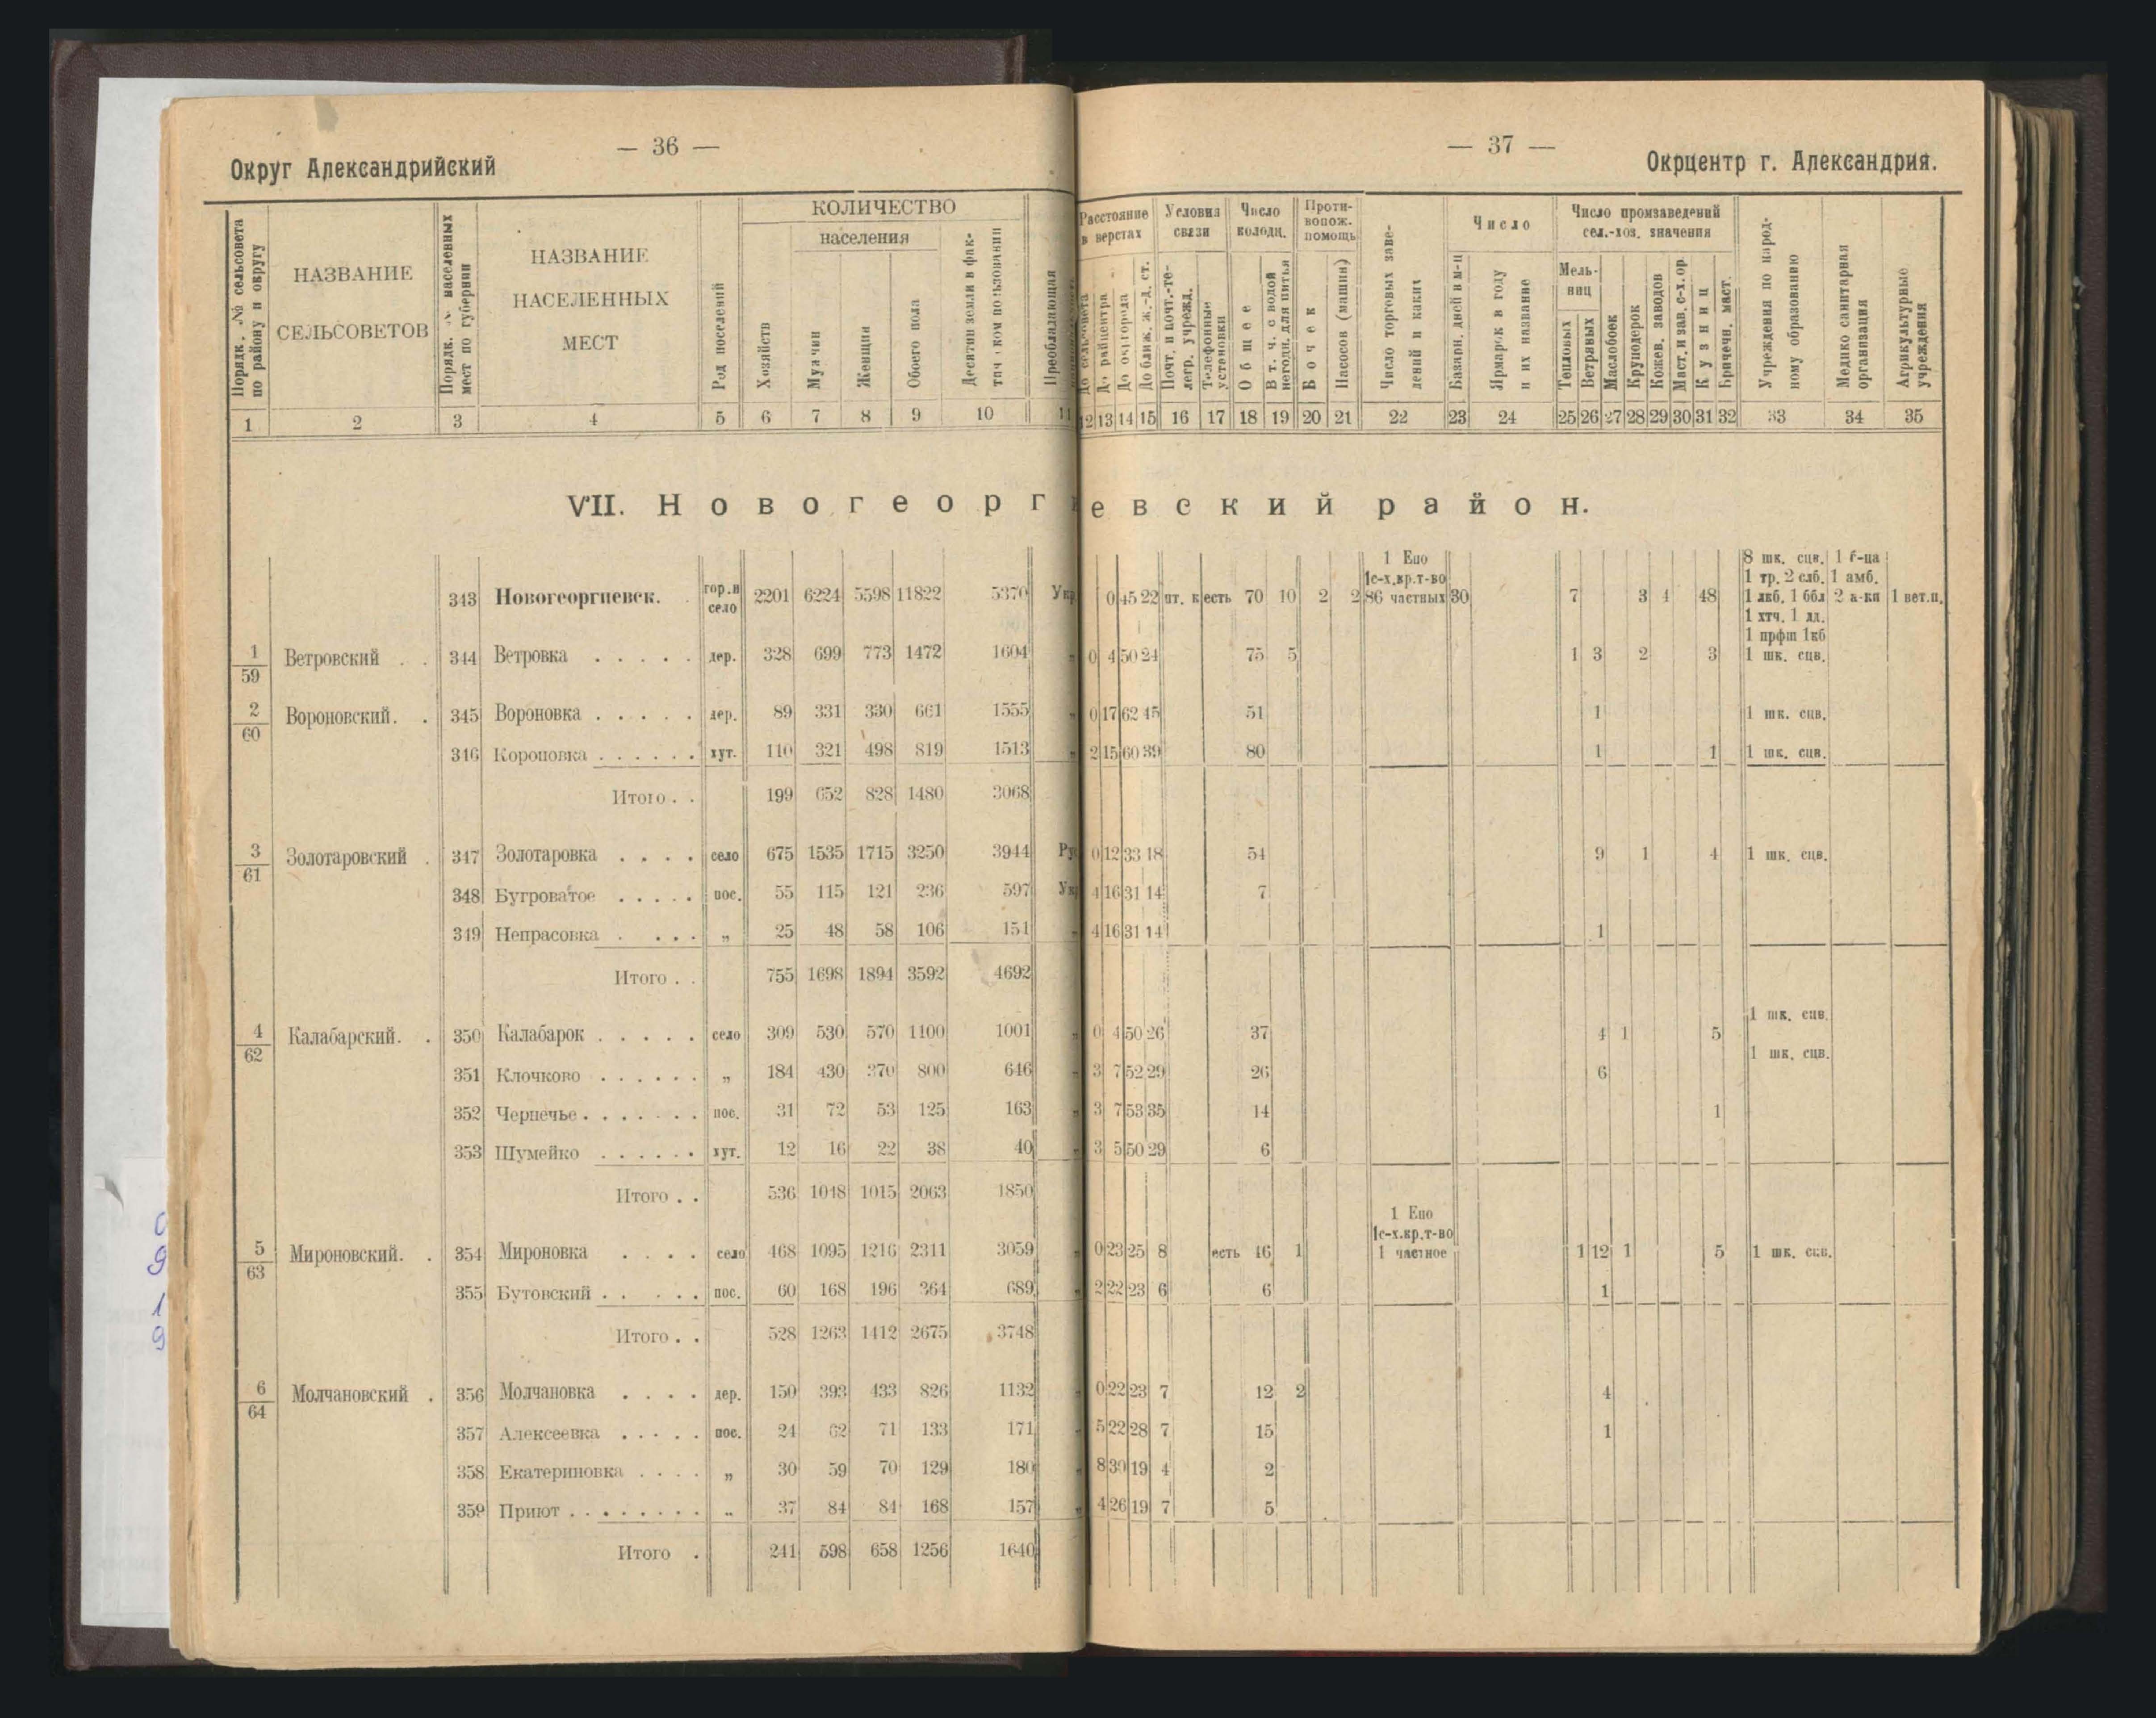 — 36 —
Округ Александрийский
Порядк. № сельсовета по району и округу
НАЗВАНИЕ СЕЛЬСОВЕТОВ
Порядк. № населенных мест по губернии
НАЗВАНИЕ НАСЕЛЕННЫХ МЕСТ
Род поселений
КОЛИЧЕСТВО
населения
Хозяйств
Мужчин
Женщин
Обоего пола
Десятин земли в фактическом пользовании
Преобладающая
1 2 3 4 5 6 7 8 9 10 11
— 37 —
Окрцентр г. Александрия.
Расстояние в верстах
До сельсовета
До райцентра
До окргорода
До ближ. ж.-д. ст.
Условия связи
Почт. и почт.-телегр. учрежд.
Телефонные установки
Число колодц.
Общее
В т. ч. с водой негодн. для питья
Противопож. помощь
Бочек
Насосов (машин)
Число торговых заведений и каких
Число
Базарн. дней в м-ц
Ярмарок в году и их название
Число промзаведений сел.-хоз. значения
Мельниц
Тепловых
Ветряных
Маслобоек
Круподерок
Кожев. заводов
Маст. и зав. с-х. ор.
Кузниц
Бричечн. маст.
Учреждения по народному образованию
Медико санитарная организация
Агрикультурные учреждения
12 13 14 15 16 17 18 19 20 21 22 23 24 25 26 27 28 29 30 31 32 33 34 35
VII. Новогеоргиевский район.
343 Новогеоргиевск. гор. и село 2201 6224 5598 11822 5370 Укр 0 45 22 пт. к есть 70 10 2 2 1 Епо 1с-х.кр.т-во 86 частных 30 7 3 4 48 8 шк. сцв. 1 тр. 2 слб. 1 лкб. 1 ббл 1 хтч. 1 дд. 1 прфш 1кб 1 б-ца 1 амб. 2 а-ки 1 вет.п.
1/59 Ветровский . . 344 Ветровка . . . . . дер. 328 699 773 1472 1604 „ 0 4 50 24 75 5 1 3 2 3 1 шк. сцв.
2/60 Вороновский. . 345 Вороновка . . . . . дер. 89 331 330 661 1555 „ 0 17 62 45 51 1 1 шк. сцв.
346 Короповка . . . . . . хут. 110 321 498 819 1513 „ 2 15 60 39 80 1 1 1 шк. сцв.
Итого . . 199 652 828 1480 3068
3/61 Золотаровский . 347 Золотаровка . . . . село 675 1535 1715 3250 3944 Ру 0 12 33 18 54 9 1 4 1 шк. сцв.
348 Бугроватое . . . . . пос. 55 115 121 236 597 Ук 4 16 31 14 7
349 Непрасовка . . . . „ 25 48 58 106 151 „ 4 16 31 14 1
Итого . . 755 1698 1894 3592 4692
4/62 Калабарский. . 350 Калабарок . . . . . село 309 530 570 1100 1001 „ 0 4 50 26 37 4 1 5 1 шк. сцв.
351 Клочково . . . . . . „ 184 430 370 800 646 „ 3 7 52 29 26 6 1 шк. сцв.
352 Чернечье . . . . . . . пос. 31 72 53 125 163 „ 3 7 53 35 14 1
353 Шумейко . . . . . . хут. 12 16 22 38 40 „ 3 5 50 29 6
Итого . . 536 1048 1015 2063 1850
5/63 Мироновский. . 354 Мироновка . . . . село 468 1095 1216 2311 3059 „ 0 23 25 8 есть 46 1 1 Епо 1с-х.кр.т-во 1 частное 1 12 1 5 1 шк. сцв.
355 Бутовский . . . . . пос. 60 168 196 364 689 „ 2 22 23 6 6 1
Итого . . 528 1263 1412 2675 3748
6/64 Молчановский . 356 Молчановка . . . . дер. 150 393 433 826 1132 „ 0 22 23 7 12 2 4
357 Алексеевка . . . . . пос. 24 62 71 133 171 „ 5 22 28 7 15 1
358 Екатериновка . . . . „ 30 59 70 129 180 „ 8 30 19 4 2
359 Приют . . . . . . . . „ 37 84 84 168 157 „ 4 26 19 7 5
Итого . 241 598 658 1256 1640